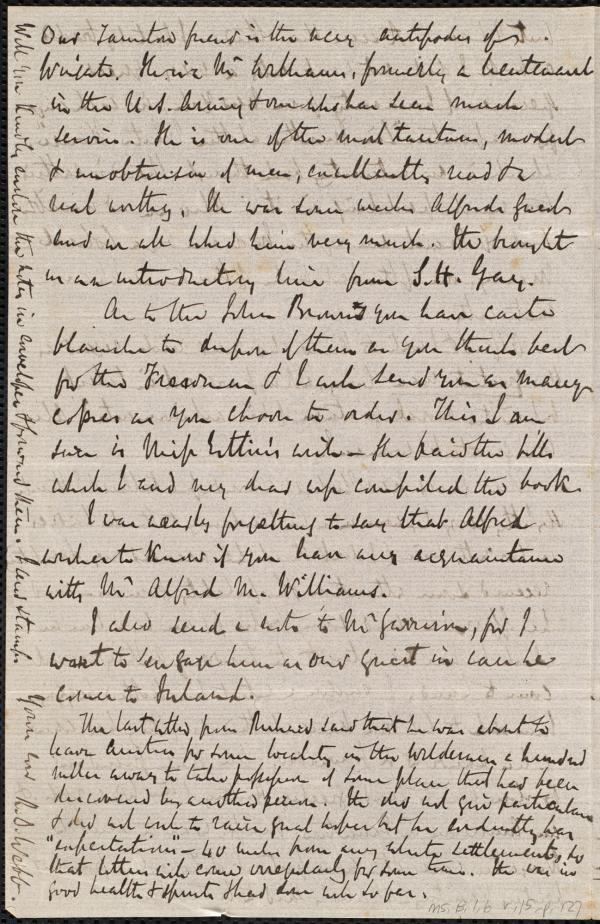 Our Taunton friend is the very antipodes of
Wingate. He is a Mr Williams, formerly a lieutenant
in the U.S. Army & one who has seen much
service. He is one of the most taciturn, modest
& unobtrusive of men, excellently read & a
real worthy. He was some weeks Alfred's guest
and we all liked him very much. He brought
me an introductory line from S.H. Gay.
As to the John Browns you have carte
blanche to dispose of them as you think best
for the Freedmen & I will send you as many
copies as you choose to order. This I am
sure is Miss Estlin's wish – she paid the bills
while I and my dear wife compiled the book.
I was nearly forgetting to say that Alfred
wishes to know if you have any acquaintance
with Mr Alfred M. Williams.
I also send a note to Mr Garrison, for I
want to engage him as our guest in case he
comes to Ireland.
The last letter from Richard said that he was about to
leave for some locality in the wilderness a hundred
miles away to take possession of some place that had been
discovered by another person. He did not give particulars
& did not wish to raise great hopes but he evidently has
"expectations" – 40 miles from any white settlements, so
that letters will come irregularly for some time. He was in
good health & spirits & had done well so far.
Will you kindly enclose the notes in envelopes & forward them. I send stamps
Yours ever R.D. Webb.
Ms. B.1.6 v.15, p. 127